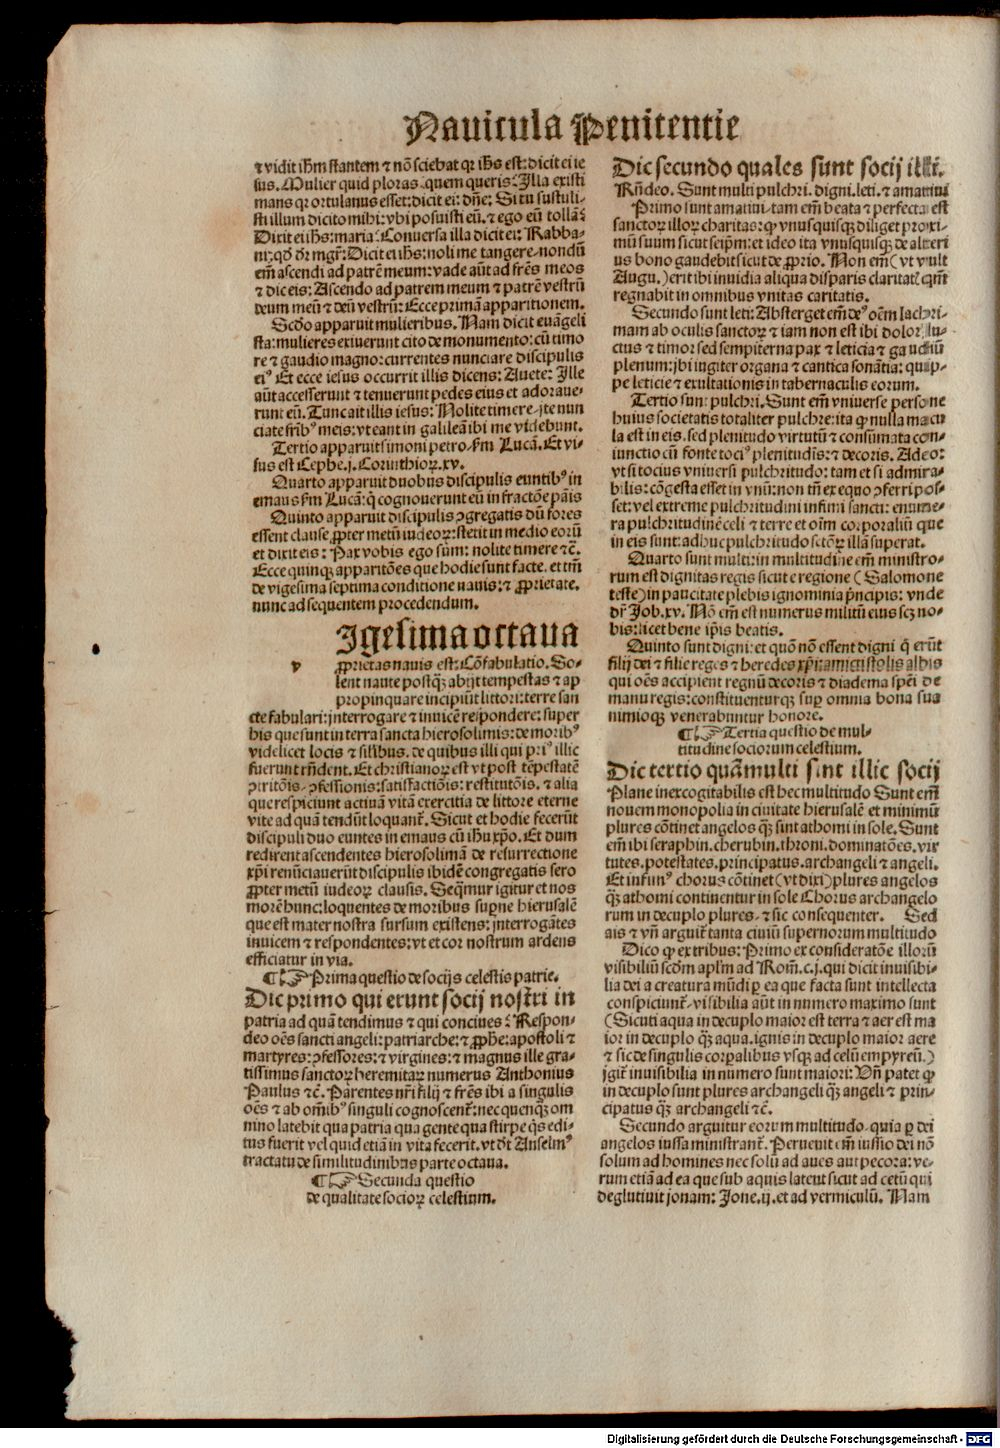 Nauicula Penitentie
⁊ vidit ihm̄ stantem ⁊ nō sciebat qꝛ ihs̄ est: dicit ei ie
sus. Mulier quid ploras quem queris? Illa existi
mans qꝛ ortulanus esset: dicit ei: dn̄e: Si tu sustuli-
sti illum dicito mihi: vbi posuisti eū. ⁊ ego eū tollā:
Dixit ei ihs̄: maria: Conuersa illa dicit ei: Rabbo-
ni: qd̄ dr̄ mgr̄: Dicit ei ihs̄: noli me tangere, nondū
em̄ ascendi ad patrē meum: vade aūt ad frēs meos
⁊ dic eis: Ascendo ad patrem meum ⁊ patrē vestrū
deum meū ⁊ deū vestrū: Ecce primā apparitionem.
Scd̄o apparuit mulieribus. Nam dicit euāgeli
sta: mulieres exiuerunt cito de monumento: cū timo
re ⁊ gaudio magno: currentes nunciare discipulis
eiꝰ Et ecce iesus occurrit illis dicens: Auete: Ille
aūt accesserunt ⁊ tenuerunt pedes eius et adoraue-
runt eū. Tunc ait illis iesus: Nolite timere, ite nun
ciate frībꝰ meis: vt eant in galileā ibi me videbunt.
Tertio apparuit simoni petro, ẜm Lucā. Et vi-
sus est Cephe. j. Corinthioꝝ. xv.
Quarto apparuit duobus discipulis euntibꝰ in
emaus ẜm Lucā: q̄ cognouerunt eū in fractōe pāis
Quinto apparuit discipulis ꝯgregatis dū fores
essent clause, ꝓpter metū iudeoꝝ: stetit in medio eorū
et dixit eis: Pax vobis ego sum: nolite timere ⁊c̄.
Ecce quinqꝫ apparitōes que hodie sunt facte. et tm̄
de vigesima septima conditione nauis: ⁊ ꝓprietate.
nunc ad sequentem procedendum.
Igesima octaua
v ꝓprietas nauis est: Cōfabulatio. So-
lent naute postqꝫ abijt tempestas ⁊ ap
propinquare incipiūt littori: terre san
cte fabulari: interrogare ⁊ inuicē respondere: super
his que sunt in terra sancta hierosolimis: de moribꝰ
videlicet locis ⁊ silibus. de quibus illi qui priꝰ illic
fuerunt rn̄dent. Et christianoꝝ est vt post tēpestatē
ꝯtritōis, ꝯfessionis: satisfactiōis: restitutōis. ⁊ alia
que respiciunt actiuā vitā exercitia de littore eterne
vite ad quā tendūt loquant̄. Sicut et hodie fecerūt
discipuli duo euntes in emaus cū ihū xp̄o. Et dum
redirent ascendentes hierosolimā de resurrectione
xp̄i renūciauerūt discipulis ibidē congregatis sero
ꝓpter metū iudeoꝝ clausis. Seqm̄ur igitur et nos
morē hunc: loquentes de moribus supne hierusalē
que est mater nostra sursum existens: interrogātes
inuicem ⁊ respondentes: vt et cor nostrum ardens
efficiatur in via.
¶ ☞ Prima questio de socijs celestis patrie.
Dic primo qui erunt socij nostri in
patria ad quā tendimus ⁊ qui conciues? Respon-
deo oēs sancti angeli: patriarche: ⁊ ꝓphe: apostoli ⁊
martyres: ꝯfessores: ⁊ virgines: ⁊ magnus ille gra-
tissimus sanctoꝝ heremitaꝝ numerus Anthonius
Paulus ⁊c̄. Parentes nr̄i filij ⁊ frēs ibi a singulis
oēs ⁊ ab om̄ibꝰ singuli cognoscent̄: nec quenqꝫ om
nino latebit qua patria qua gente qua stirpe q̄s edi-
tus fuerit vel quid etiā in vita fecerit. vt dt̄ Anselmꝰ
tractatu de similitudinibus parte octaua.
¶ ☞ Secunda questio
de qualitate socioꝝ celestium.
Dic secundo quales sunt socij illi.
Rn̄deo. Sunt multi pulchri. digni. leti. ⁊ amatiui
Primo sunt amatiui, tam em̄ beata ⁊ perfecta est
sanctoꝝ illoꝝ charitas: ꝙ vnusquisqꝫ diliget proxi-
mū suum sicut seip̄m: et ideo ita vnusquisqꝫ de alteri
us bono gaudebit sicut de ꝓprio. Non em̄ (vt vult
Augu.) erit ibi inuidia aliqua disparis claritatꝭ qm̄
regnabit in omnibus vnitas caritatis.
Secundo sunt leti: Absterget em̄ deꝰ oēm lachri-
mam ab oculis sanctoꝝ ⁊ iam non est ibi dolor, lu-
ctus ⁊ timor sed sempiterna pax ⁊ leticia ⁊ gaudiū
plenum: ibi iugiter organa ⁊ cantica sonātia: quip-
pe leticie ⁊ exultationis in tabernaculis eorum.
Tertio sunt pulchri. Sunt em̄ vniuerse persone
huius societatis totaliter pulchre: ita ꝙ nulla macu
la est in eis. sed plenitudo virtutū ⁊ consūmata con-
iunctio cū fonte tociꝰ plenitudīs: ⁊ decoris. Adeo:
vt si tocius vniuersi pulchritudo: tam et si admira-
bilis: cōgesta esset in vnū: non tn̄ ex equo ꝯferri pos-
set: vel extreme pulchritudini infimi sancti: enume-
ra pulchritudinē celi ⁊ terre et oīm corporaliū que
in eis sunt: adhuc pulchritudo sctōꝝ illā superat.
Quarto sunt multi: in multitudine em̄ ministro-
rum est dignitas regis sicut e regione (Salomone
teste) in paucitate plebis ignominia p̄ncipis: vnde
dr̄ Job. xv. Nō em̄ est numerus militū eius scꝫ no-
bis: licet bene ip̄is beatis.
Quinto sunt digni: et quō nō essent digni q̄ erūt
filij dei ⁊ filie reges ⁊ heredes xp̄i: amicti stolis albis
qui oēs accipient regnū decoris ⁊ diadema spēi de
manu regis: constituenturqꝫ suꝑ omnia bona sua
nimioqꝫ venerabuntur honore.
¶ ☞ Tertia questio de mul-
titudine sociorum celestium.
Dic tertio quā multi sunt illic socij
Plane inexcogitabilis est hec multitudo Sunt em̄
nouem monopolia in ciuitate hierusalē et minimū
plures cōtinet angelos qꝫ sint athomi in sole. Sunt
em̄ ibi seraphin. cherubin. throni. dominatōes. vir
tutes. potestates. principatus. archangeli ⁊ angeli.
Et infimꝰ chorus cōtinet (vt dixi) plures angelos
qꝫ athomi continentur in sole Chorus archangelo
rum in decuplo plures, ⁊ sic consequenter. Sed
ais ⁊ vn̄ arguit̄ tanta ciuiū supernorum multitudo
Dico ꝙ ex tribus: Primo ex consideratōe illorū
visibiliū scd̄m apl̄m ad Rom̄. c. j. qui dicit inuisibi-
lia dei a creatura mūdi ꝑ ea que facta sunt intellecta
conspiciunt̄, visibilia aūt in numero maximo sunt
(Sicuti aqua in decuplo maior est terra ⁊ aer est ma
ior in decuplo qꝫ aqua. ignis in decuplo maior aere
⁊ sic de singulis corpalibus vsqꝫ ad celū empyreū.)
igit̄ inuisibilia in numero sunt maiori: Vn̄ patet ꝙ
in decuplo sunt plures archangeli qꝫ angeli ⁊ prin-
cipatus qꝫ archangeli ⁊c̄.
Secundo arguitur eorum multitudo, quia ꝑ dei
angelos iussa ministrant̄. Peruenit em̄ iussio dei nō
solum ad homines nec solū ad aues aut pecora: ve-
rum etiā ad ea que sub aquis latent sicut ad cetū qui
deglutiuit jonam: Jone. ij. et ad vermiculū. Nam
Digitalisierung gefördert durch die Deutsche Forschungsgemeinschaft - DFG